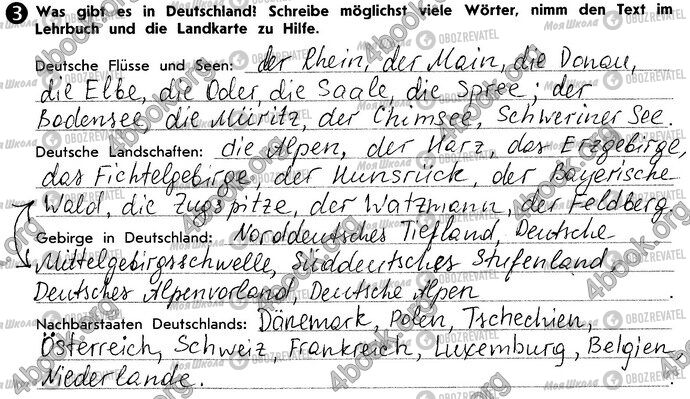 3 Was gibt es in Deutschland! Schreibe möglichst viele Wörter, nimm den Text im
Lehrbuch und die Landkarte zu Hilfe.
Deutsche Flüsse und Seen: der Rhein, der Main, die Donau,
die Elbe, die Oder, die Saale, die Spree; der
Bodensee, die Müritz, der Chimsee, Schweriner See.
Deutsche Landschaften: die Alpen, der Harz, das Erzgebirge,
das Fichtelgebirge, der Hunsrück, der Bayerische
Wald, die Zugspitze, der Watzmann, der Feldberg
Gebirge in Deutschland: Norddeutsches Tiefland, Deutsche
Mittelgebirgsschwelle, Süddeutsches Stufenland,
Deutsches Alpenvorland, Deutsche Alpen
Nachbarstaaten Deutschlands: Dänemark, Polen, Tschechien,
Österreich, Schweiz, Frankreich, Luxemburg, Belgien,
Niederlande.